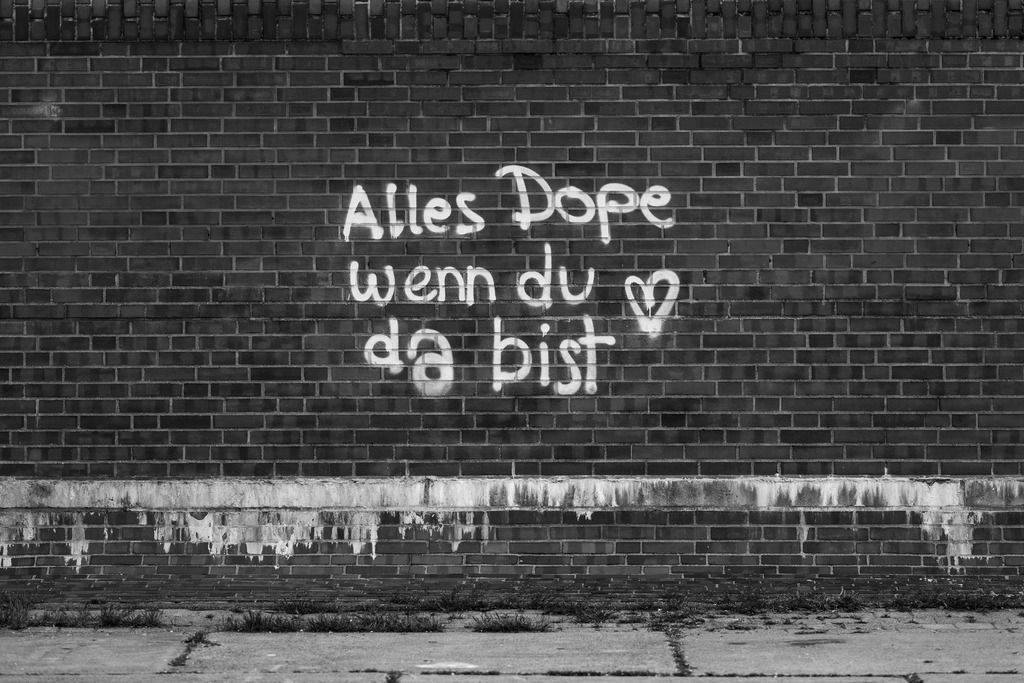 Alles Dope
wenn du
da bist